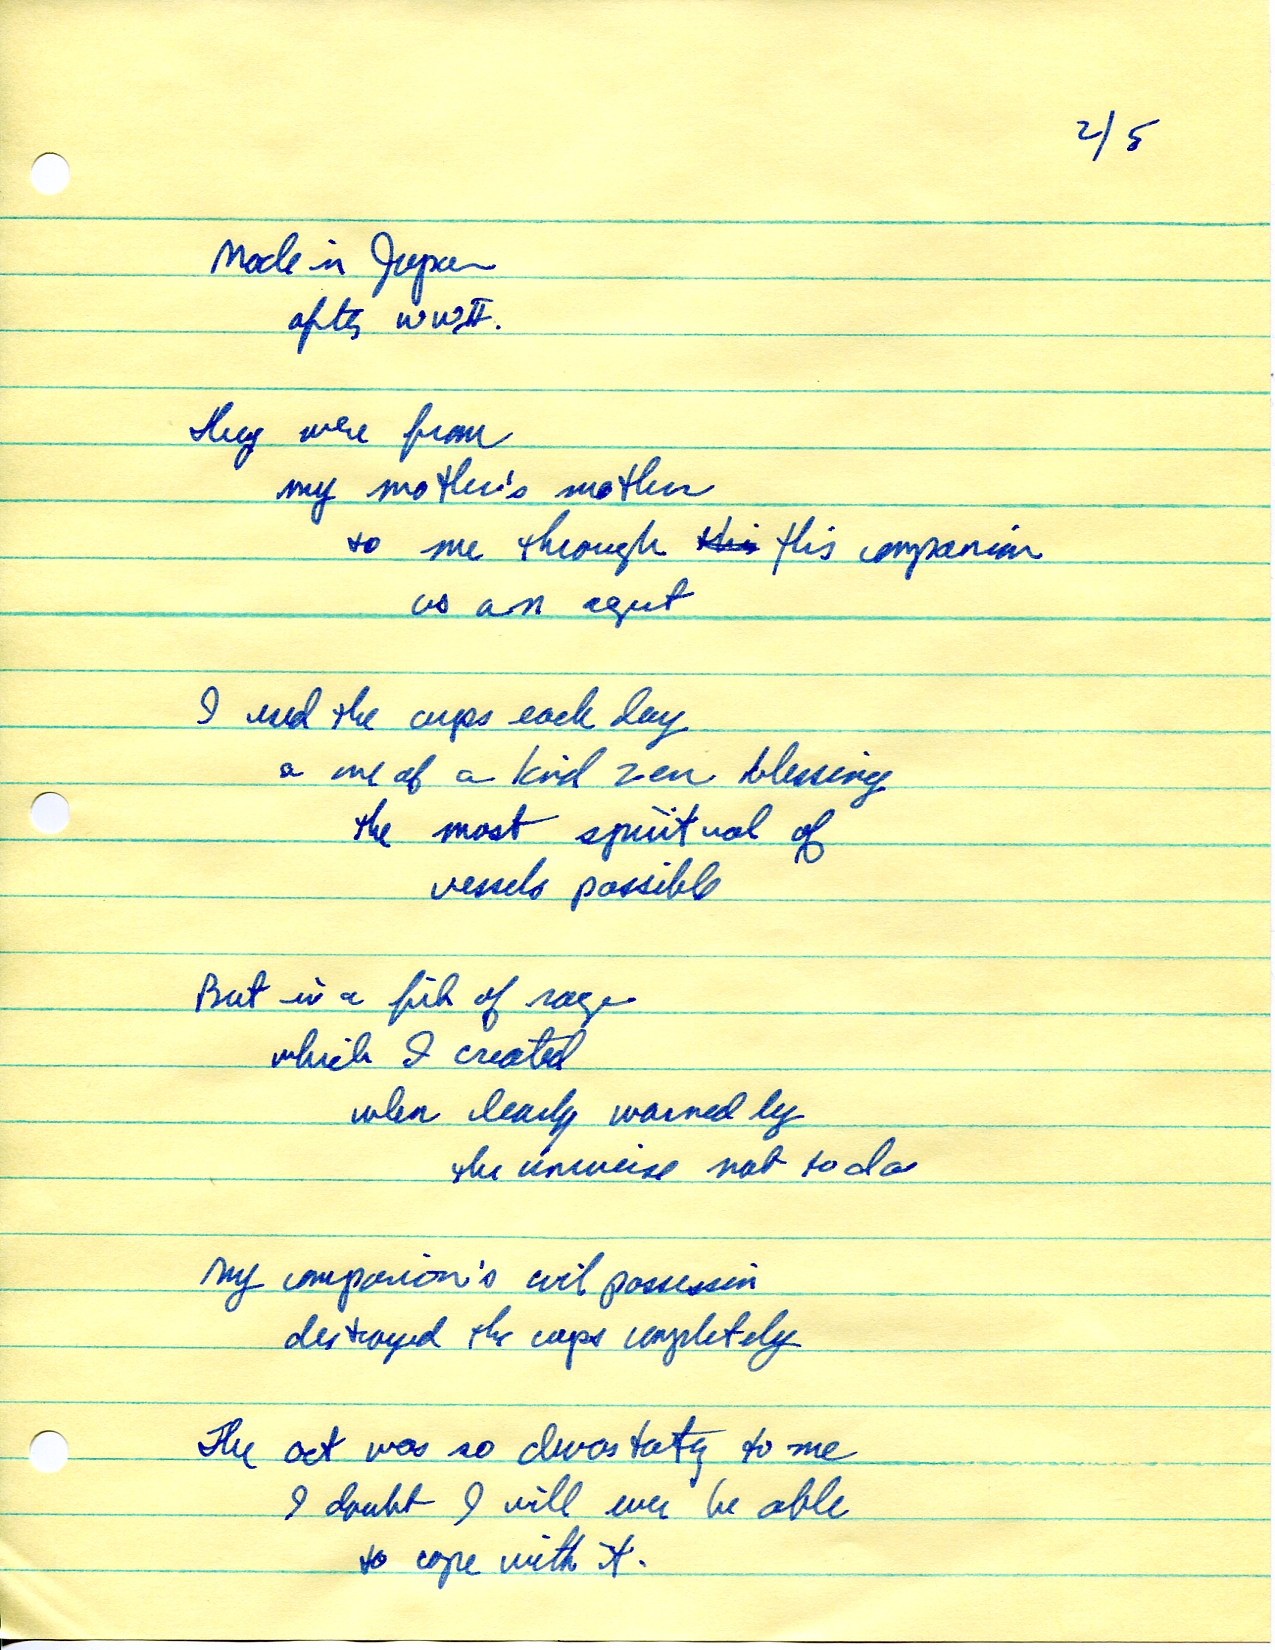 2/5
Made in Japan
after WWII.
They were from
my mother's mother
to me through this this companion
as an agent
I used the cups each day
a one of a kind zen blessing
the most spiritual of
vessels possible
But in a fit of rage
which I created
when clearly warned by
the universe not to do
My companion's evil possession
destroyed the cups completely
The act was so devastating to me
I doubt I will ever be able
to cope with it.